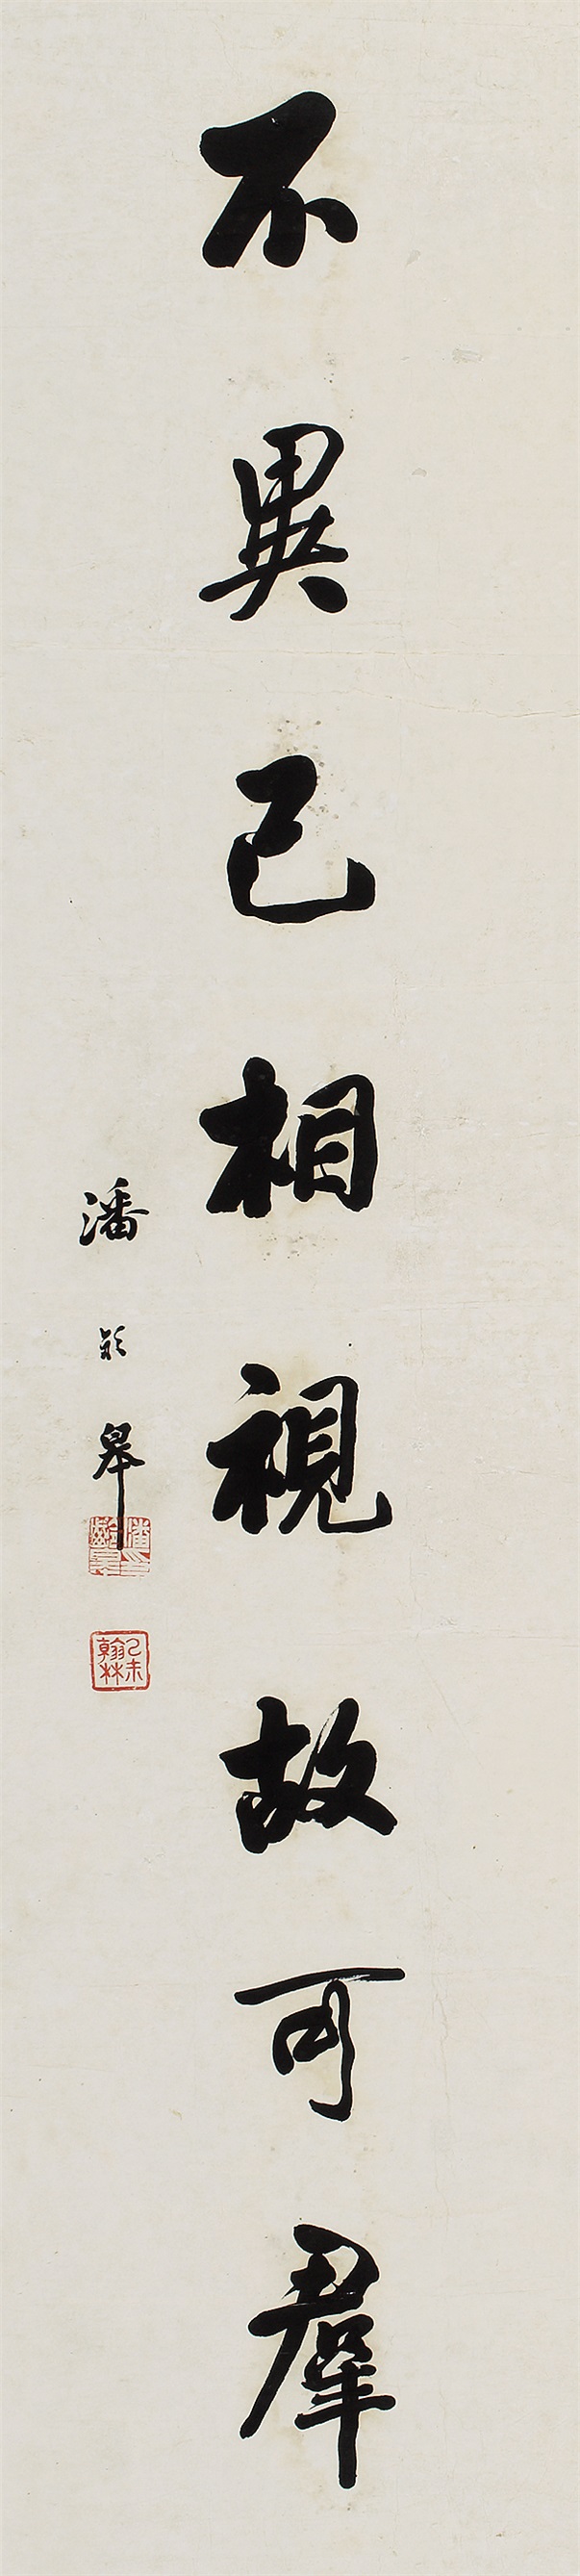 不異己相視故可羣
潘齡皋
乙未翰林